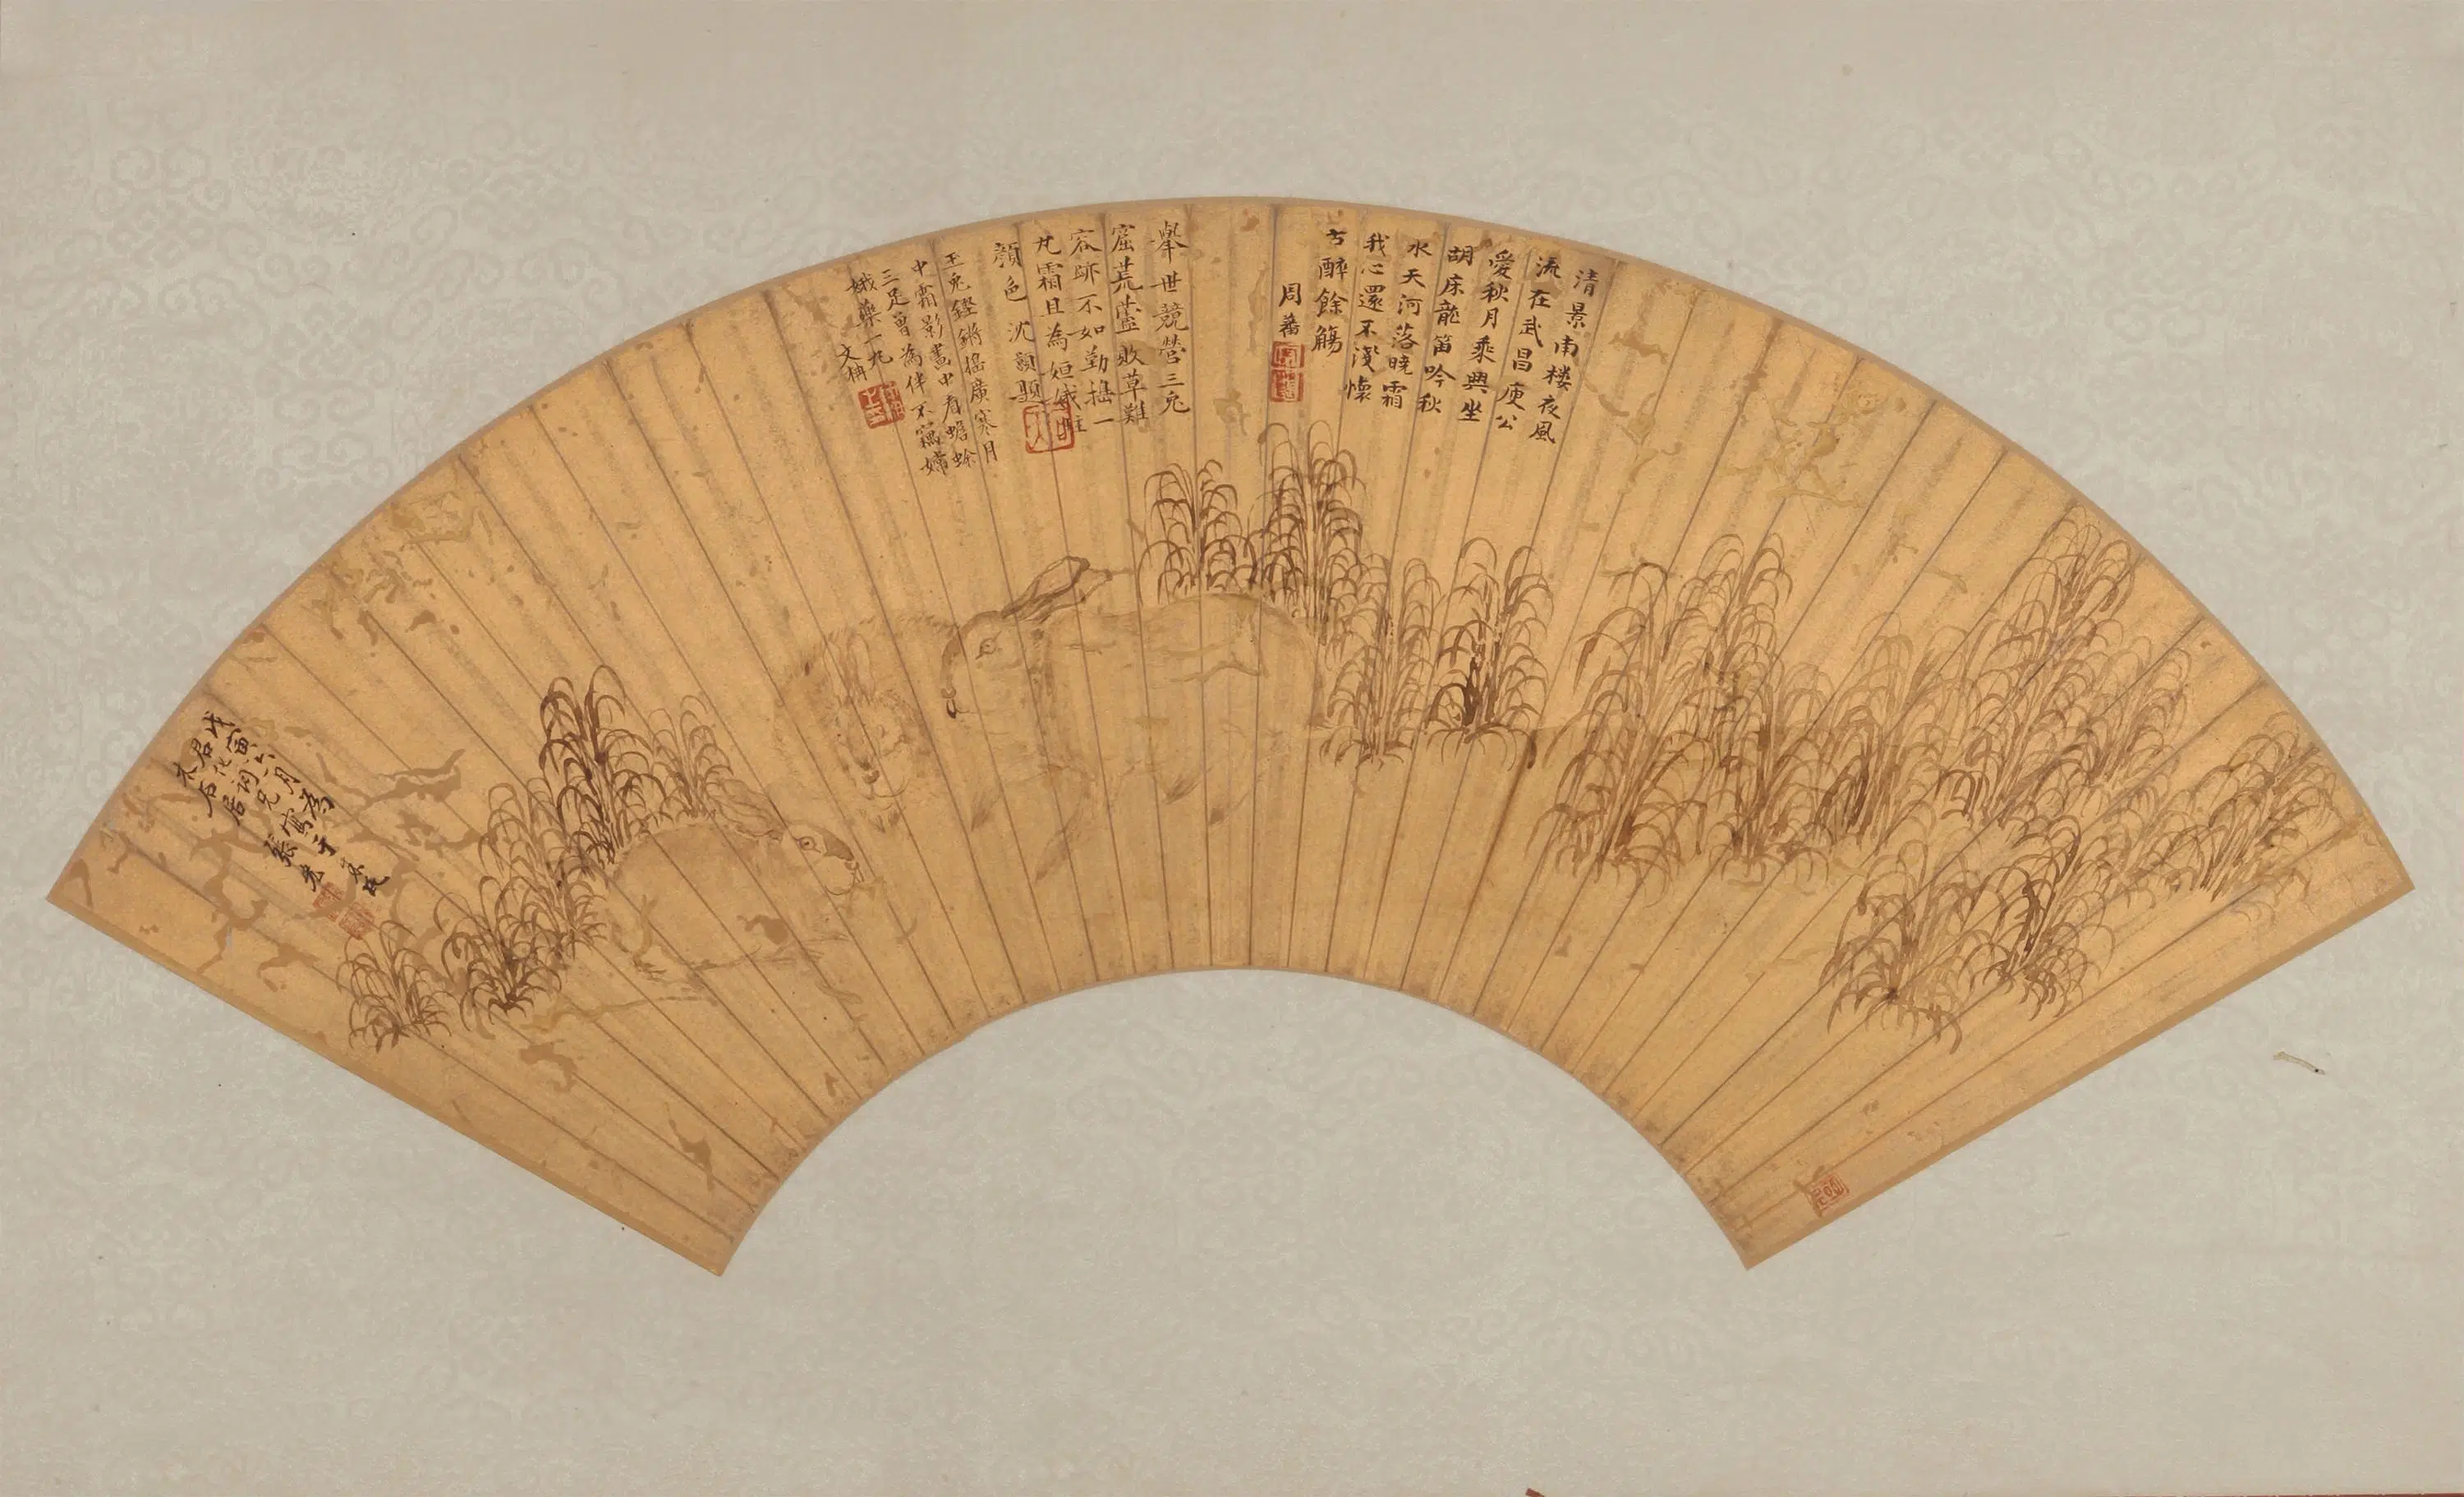 清景南楼夜風
流在武昌庾公
愛秋月乘興坐
胡床龍笛吟秋
水天河落曉霜
我心還不淺懷
古醉餘觴
周蕃
舉世競營三兔
窟荒敗草難
容跡不如勤搗一
丸霜且為姮娥駐
顏色 沈顥題
玉兔鏗鏘搗廣寒月
中霜影畫中看蟾蜍
三足曾為伴不竊嫦
娥藥一丸
文柟
戊寅六月為
君化詞兄寫于
木石居
張